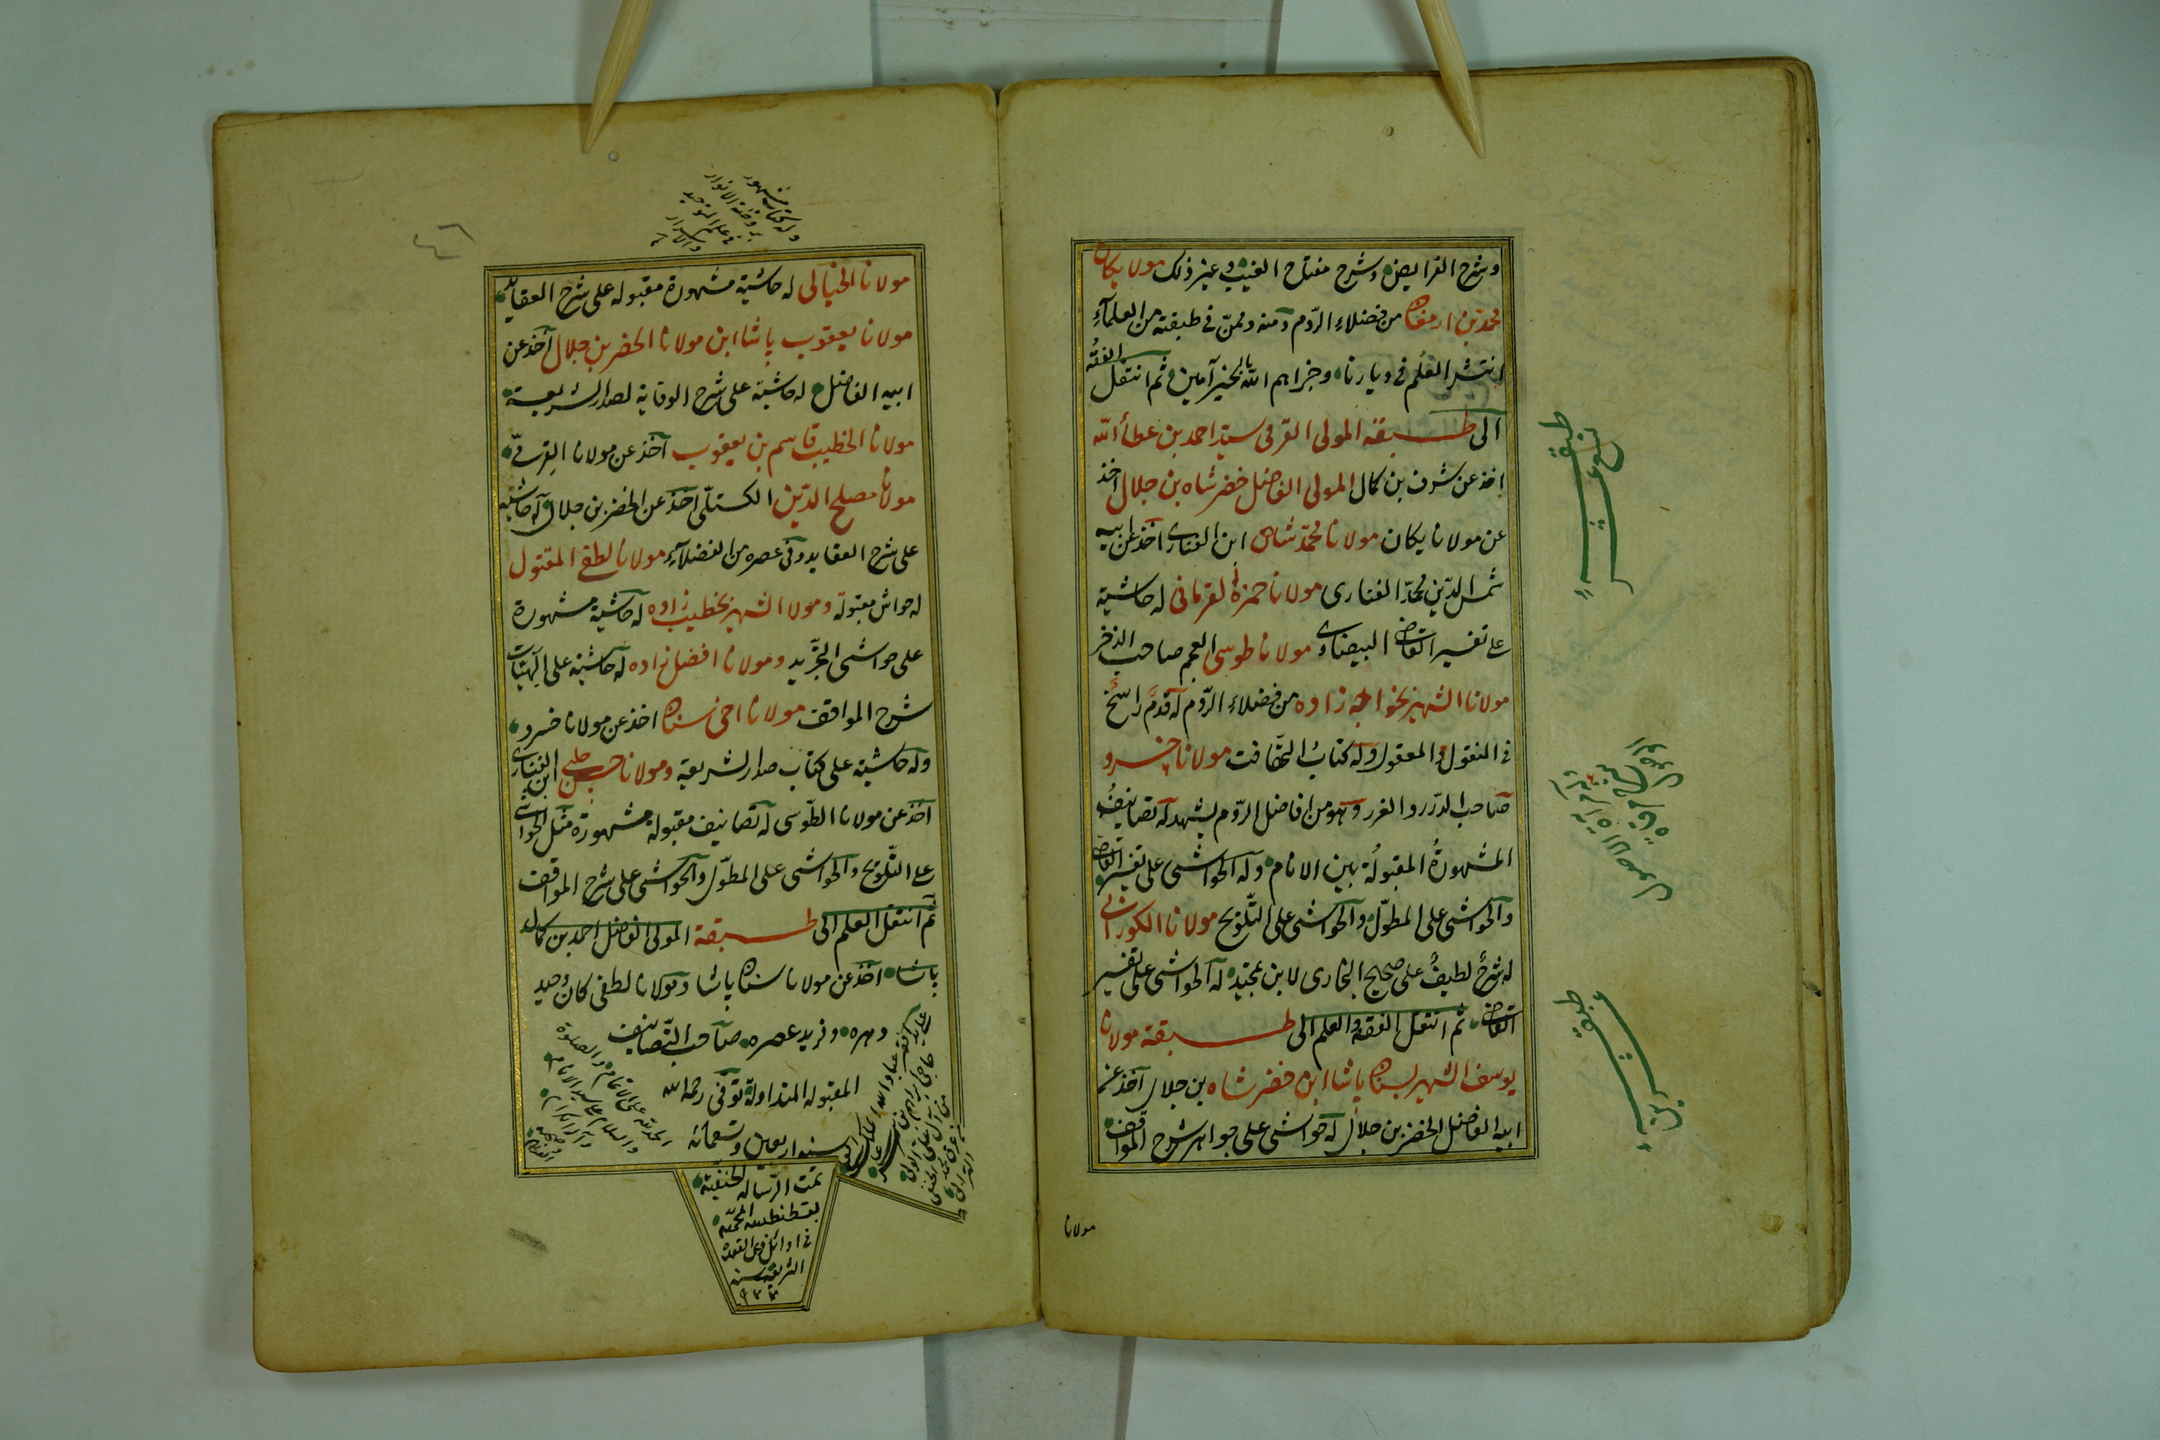 وشرح الفرايض وشرح مفتاح الغيب وغير ذلك مولانا يكان
محمد بن ارمغان من فضلاء الروم ومنه وممن في طبقته من العلماء
انتشر العلم في ديارنا وجزاهم الله بالخير آمين ثم انتقل الفقه
الى طبقة المولى القرمى سيد احمد بن عطاء الله
اخذ عن شرف بن كمال المولى الفاضل خضر شاه بن جلال اخذ
عن مولانا يكان مولانا محمد شاه ابن الفنارى آخذ عن ابيه
شمس الدين محمد الفنارى مولانا حمزة القرمانى له حاشية
على تفسير القاضى البيضاوى مولانا طوسى العجم صاحب الذخر
مولانا الشهير بخواجه زاده من فضلاء الروم له قدم راسخ
فى المنقول والمعقول وله كتاب التهافت مولانا خسرو
صاحب الدرر والغرر وهو من افاضل الروم يشهد له تصانيفه
المشهورة المقبولة بين الانام وله الحواشى على تفسير القاضى
والحواشى على المطول والحواشى على التلويح مولانا الكورانى
له شرح لطيف على صحيح البخارى لابن تمجيد له الحواشى على تفسير
القاضى ثم انتقل الفقه والعلم الى طبقة مولانا
يوسف الشهير بسنان پاشا ابن خضر شاه بن جلال آخذ عن
ابيه الفاضل الخضر بن جلال له حواشى على جواهر شرح المواقف
مولانا
طبقة
تسع عشر
طبقة
عشرين
وله كتاب مشهور
روضة الانوار
فى علم التوحيد
والاسرار
مولانا الخيالى له حاشية مشهورة مقبولة على شرح العقايد
مولانا يعقوب پاشا ابن مولانا الخضر بن جلال آخذ عن
ابيه الفاضل له حاشية على شرح الوقاية لصدر الشريعة
مولانا الخطيب قاسم بن يعقوب آخذ عن مولانا القرمى
مولانا مصلح الدين الكستلى آخذ عن الخضر بن جلال له حاشية
على شرح العقايد وفى عصره من الفضلاء مولانا لطفى المقتول
له حواش مقبولة ومولانا الشهير بخطيب زاده له حاشية مشهورة
على حواشى التجريد ومولانا افضل زاده له حاشية على الهيات
شرح المواقف مولانا اخى سنان اخذ عن مولانا خسرو
وله حاشية على كتاب صدر الشريعة ومولانا حسن چلبى ابن الفنارى
آخذ عن مولانا الطوسى له تصانيف مقبولة مشهورة مثل الحواشى
على التلويح والحواشى على المطول والحواشى على شرح المواقف
ثم انتقل العلم الى طبقة المولى الفاضل احمد بن كمال
پاشا آخذ عن مولانا سنان پاشا ومولانا لطفى كان وحيد
دهره وفريد عصره صاحب التصانيف
المقبولة المتداولة توفى رحمه الله
سنه اربعين وتسعمائة
الحمد لله على الاتمام والصلوة
والسلام على سيد الانام
وآله الكرام
تمت الرسالة الحنفية
بقسطنطينيه المحميه
فى اوائل ذى القعده
الشريفه سنه